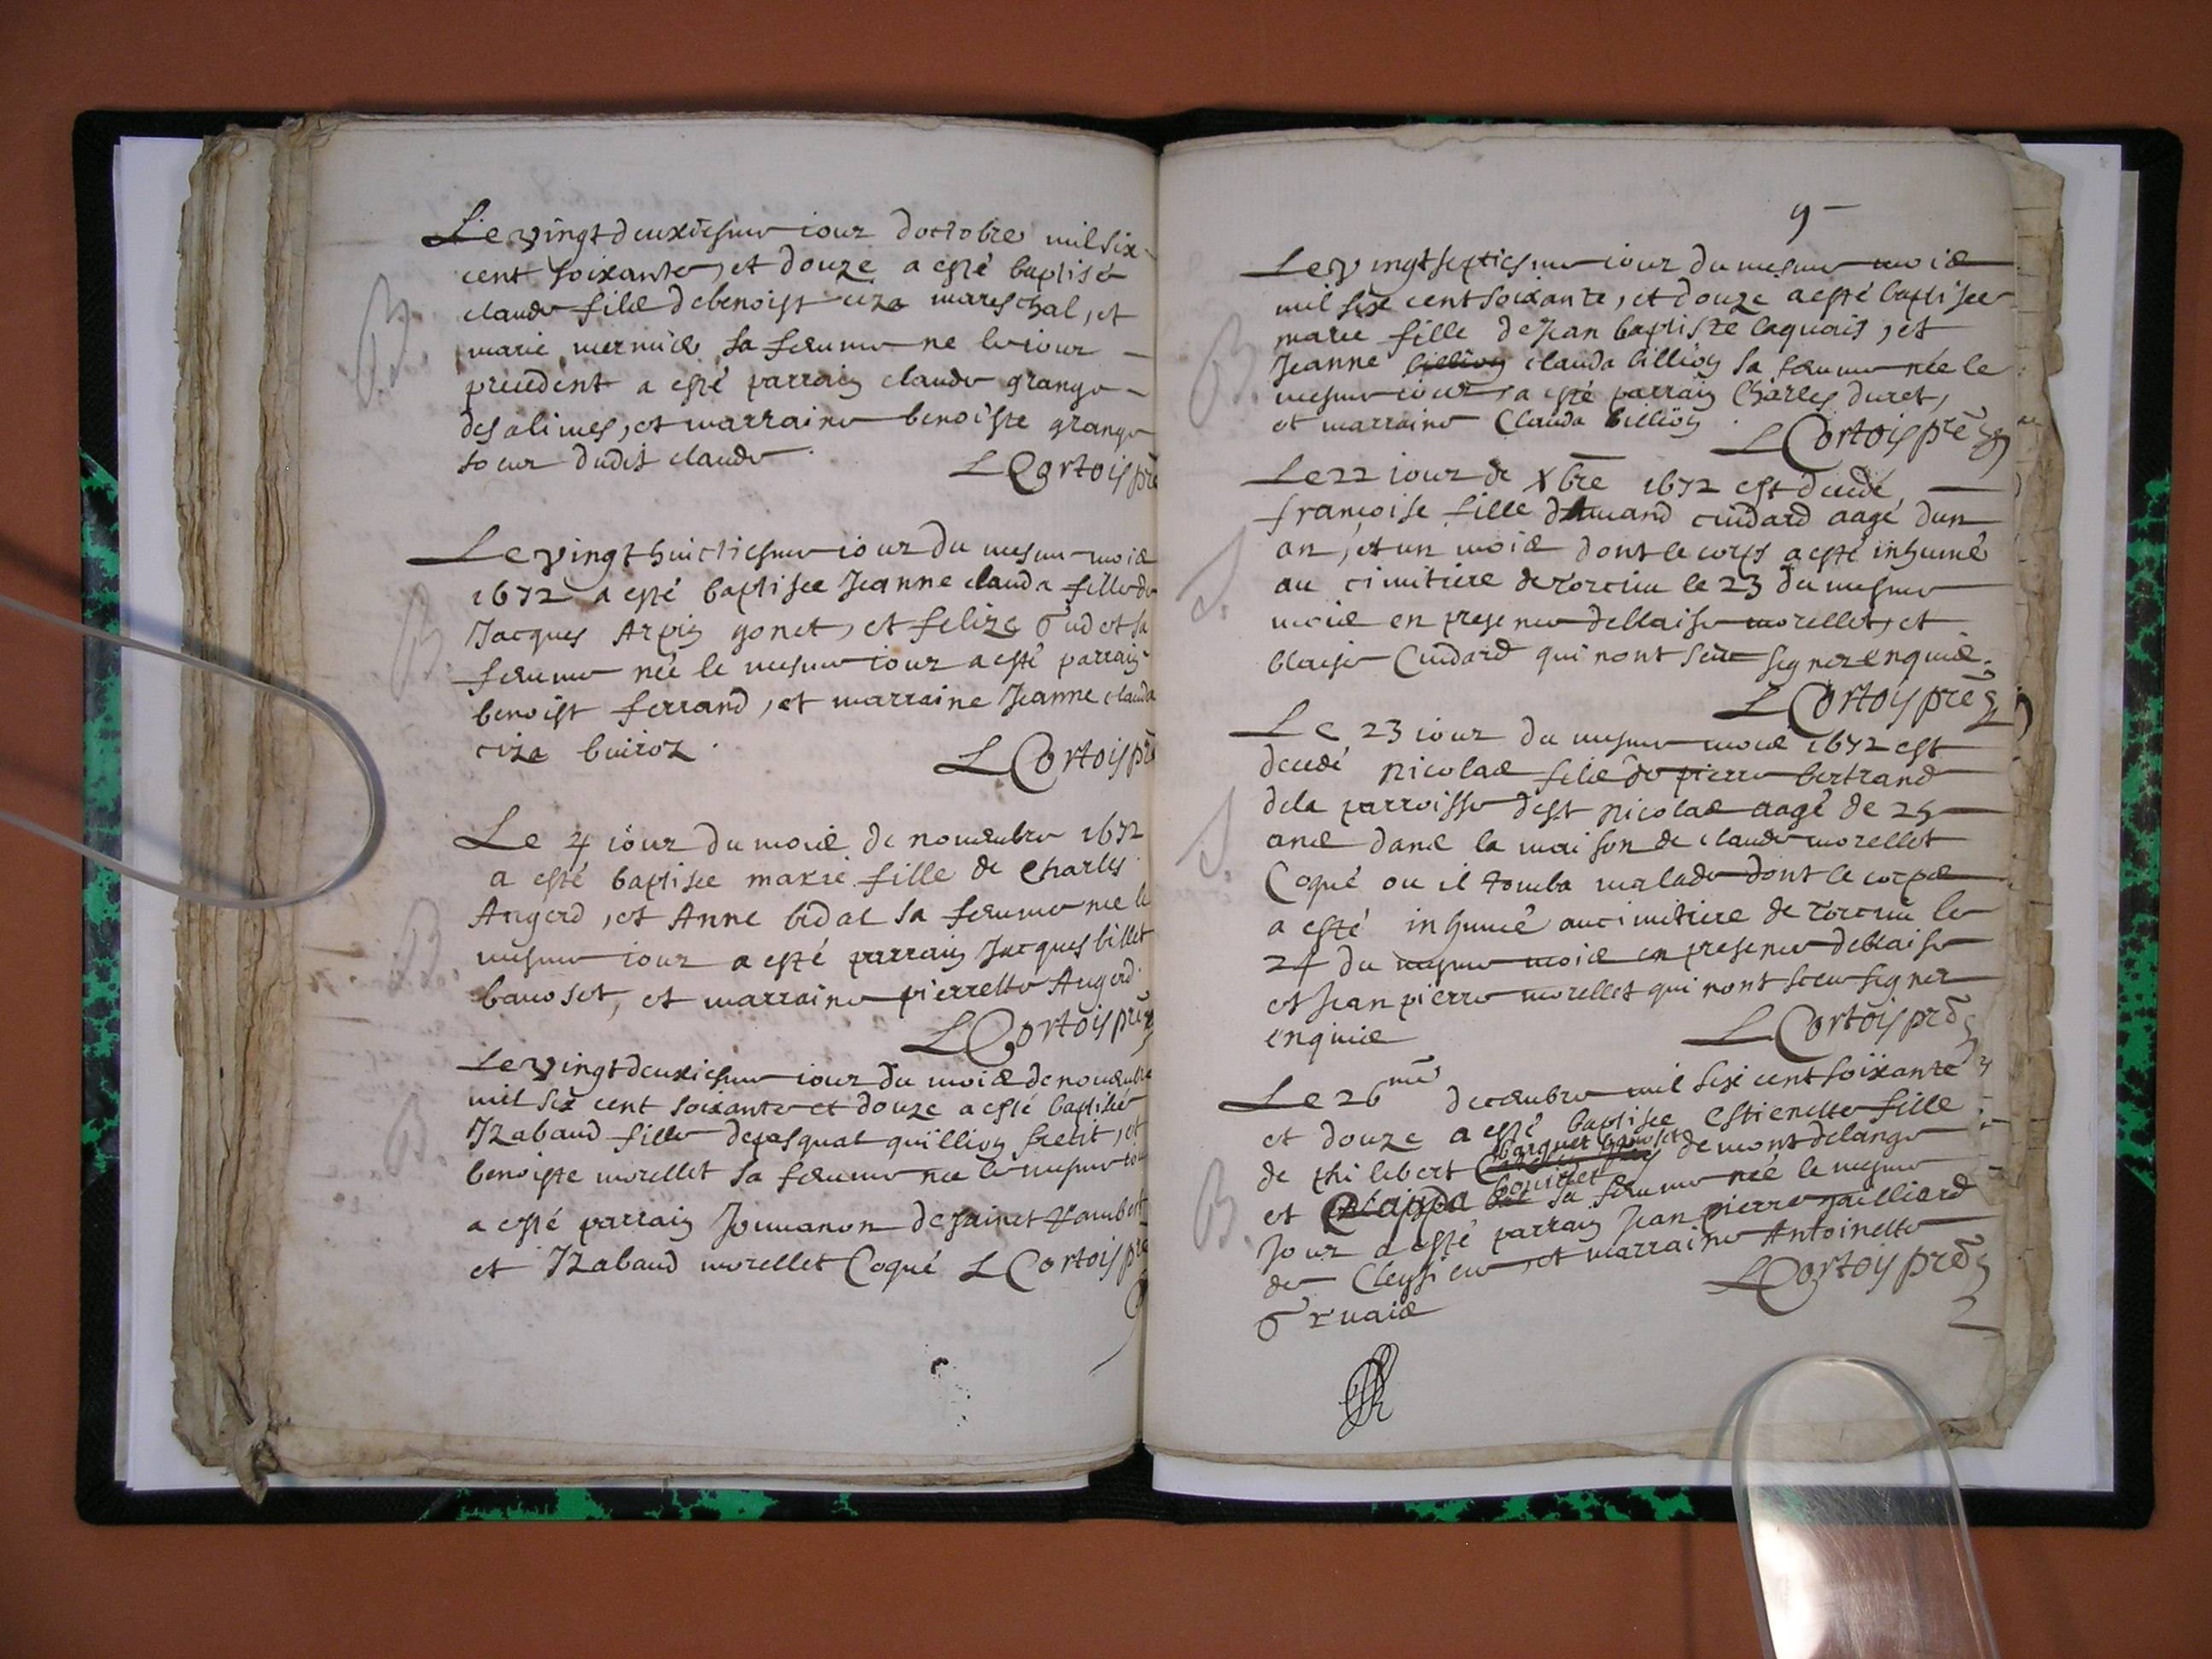 B.
Le vingt deuxiesme iour doctobre mil six
cent soixante, et douze a esté baptisé
claude fils de benoist ciza mareschal, et
marie mermis sa femme ne le iour
precedent a esté parrain claude grange
des alimes, et marraine benoiste grange
soeur dudit claude.
L Cortois pre
B.
Le vingt huictiesme iour du mesme mois
1672 a esté baptisee Jeanne clauda fille de
Jacques Arpin gonet, et felize et sa
femme née le mesme iour a esté parrain
benoist ferrand, et marraine Jeanne clauda
ciza buiroz.
L Cortois pre
B.
Le 4 iour du mois de nouembre 1672
a esté baptisee marie fille de Charles
Augerd, et Anne bidal sa femme nee le
mesme iour a esté parrain Jacques billet
bauoset, et marraine pierrette Augerd.
L Cortois pre
B.
Le vingt deuxiesme iour du mois de nouembre
mil six cent soixante et douze a esté baptisée
Izabaud fille de pasqual quillion fretit, et
benoiste morellet sa femme nee le mesme iour
a esté parrain Joumanon de sainct rambert
et Izabaud morellet Coqué L Cortois pre
9
B.
Le vingt septiesme iour du mesme mois
mil six cent soixante, et douze a esté baptisee
marie fille de Jean baptiste laquais, et
Jeanne billion clauda billion sa femme née le
mesme iour, a esté parrain Charles duret,
et marraine Clauda billion.
L Cortois pre
S.
Le 22 iour de Xbre 1672 est decedé,
françoise fille cuidard aagé dun
an, et un mois dont le corps a esté inhumé
au cimitiere de torcieu le 23 du mesme
mois en presence de blaise morellet, et
blaise Cuidard qui nont sceu signer enquis.
L Cortois pre
S.
Le 23 iour du mesme mois 1672 est
decedé nicolas fils de pierre bertrand
dela parroisse de st nicolas aagé de 25
ans dans la maison de claude morellet
Coqué ou il tomba malade dont le corps
a esté inhumé au cimitiere de torcieu le
24 du mesme mois en presence de blaise
et Jean pierre morellet qui nont sceu signer
enquis
L Cortois pre
B.
Le 26me decembre mil six cent soixante
et douze a esté baptisee Estienette fille
de philibert de montdelange
et sa femme née le mesme
Jour a esté parrain Jean pierre gailliard
de Cleysieu, et marraine Antoinette
L Cortois pre